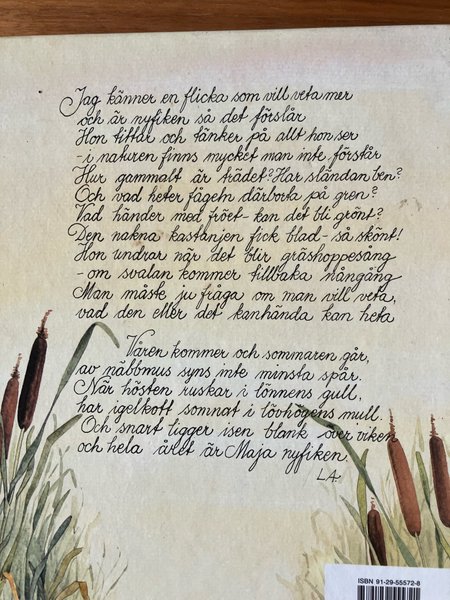 Jag känner en flicka som vill veta mer
och är nyfiken så det förslår
Hon tittar och tänker på allt hon ser
- i naturen finns mycket man inte förstår
Hur gammalt är trädet? Har sländan ben?
Och vad heter fågeln därborta på gren?
Vad händer med fröet - kan det bli grönt?
Den nakna kastanjen fick blad - så skönt!
Hon undrar när det blir gräshoppesång
- om svalan kommer tillbaka nångång
Man måste ju fråga om man vill veta,
vad den eller det kanhända kan heta
Våren kommer och sommaren går,
av näbbmus syns inte minsta spår.
När hösten ruskar i lönnens gull,
har igelkott somnat i lövhögens mull.
Och snart ligger isen blank över viken
och hela året är Maja nyfiken.
LA
ISBN 91-29-55572-8